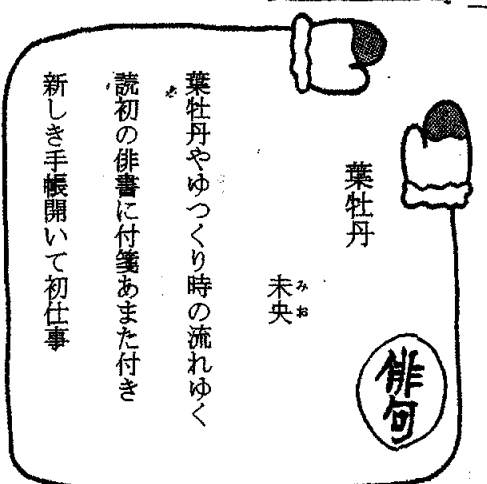 俳句
葉牡丹
未央
みお
葉牡丹やゆつくり時の流れゆく
読初の俳書に付箋あまた付き
新しき手帳開いて初仕事